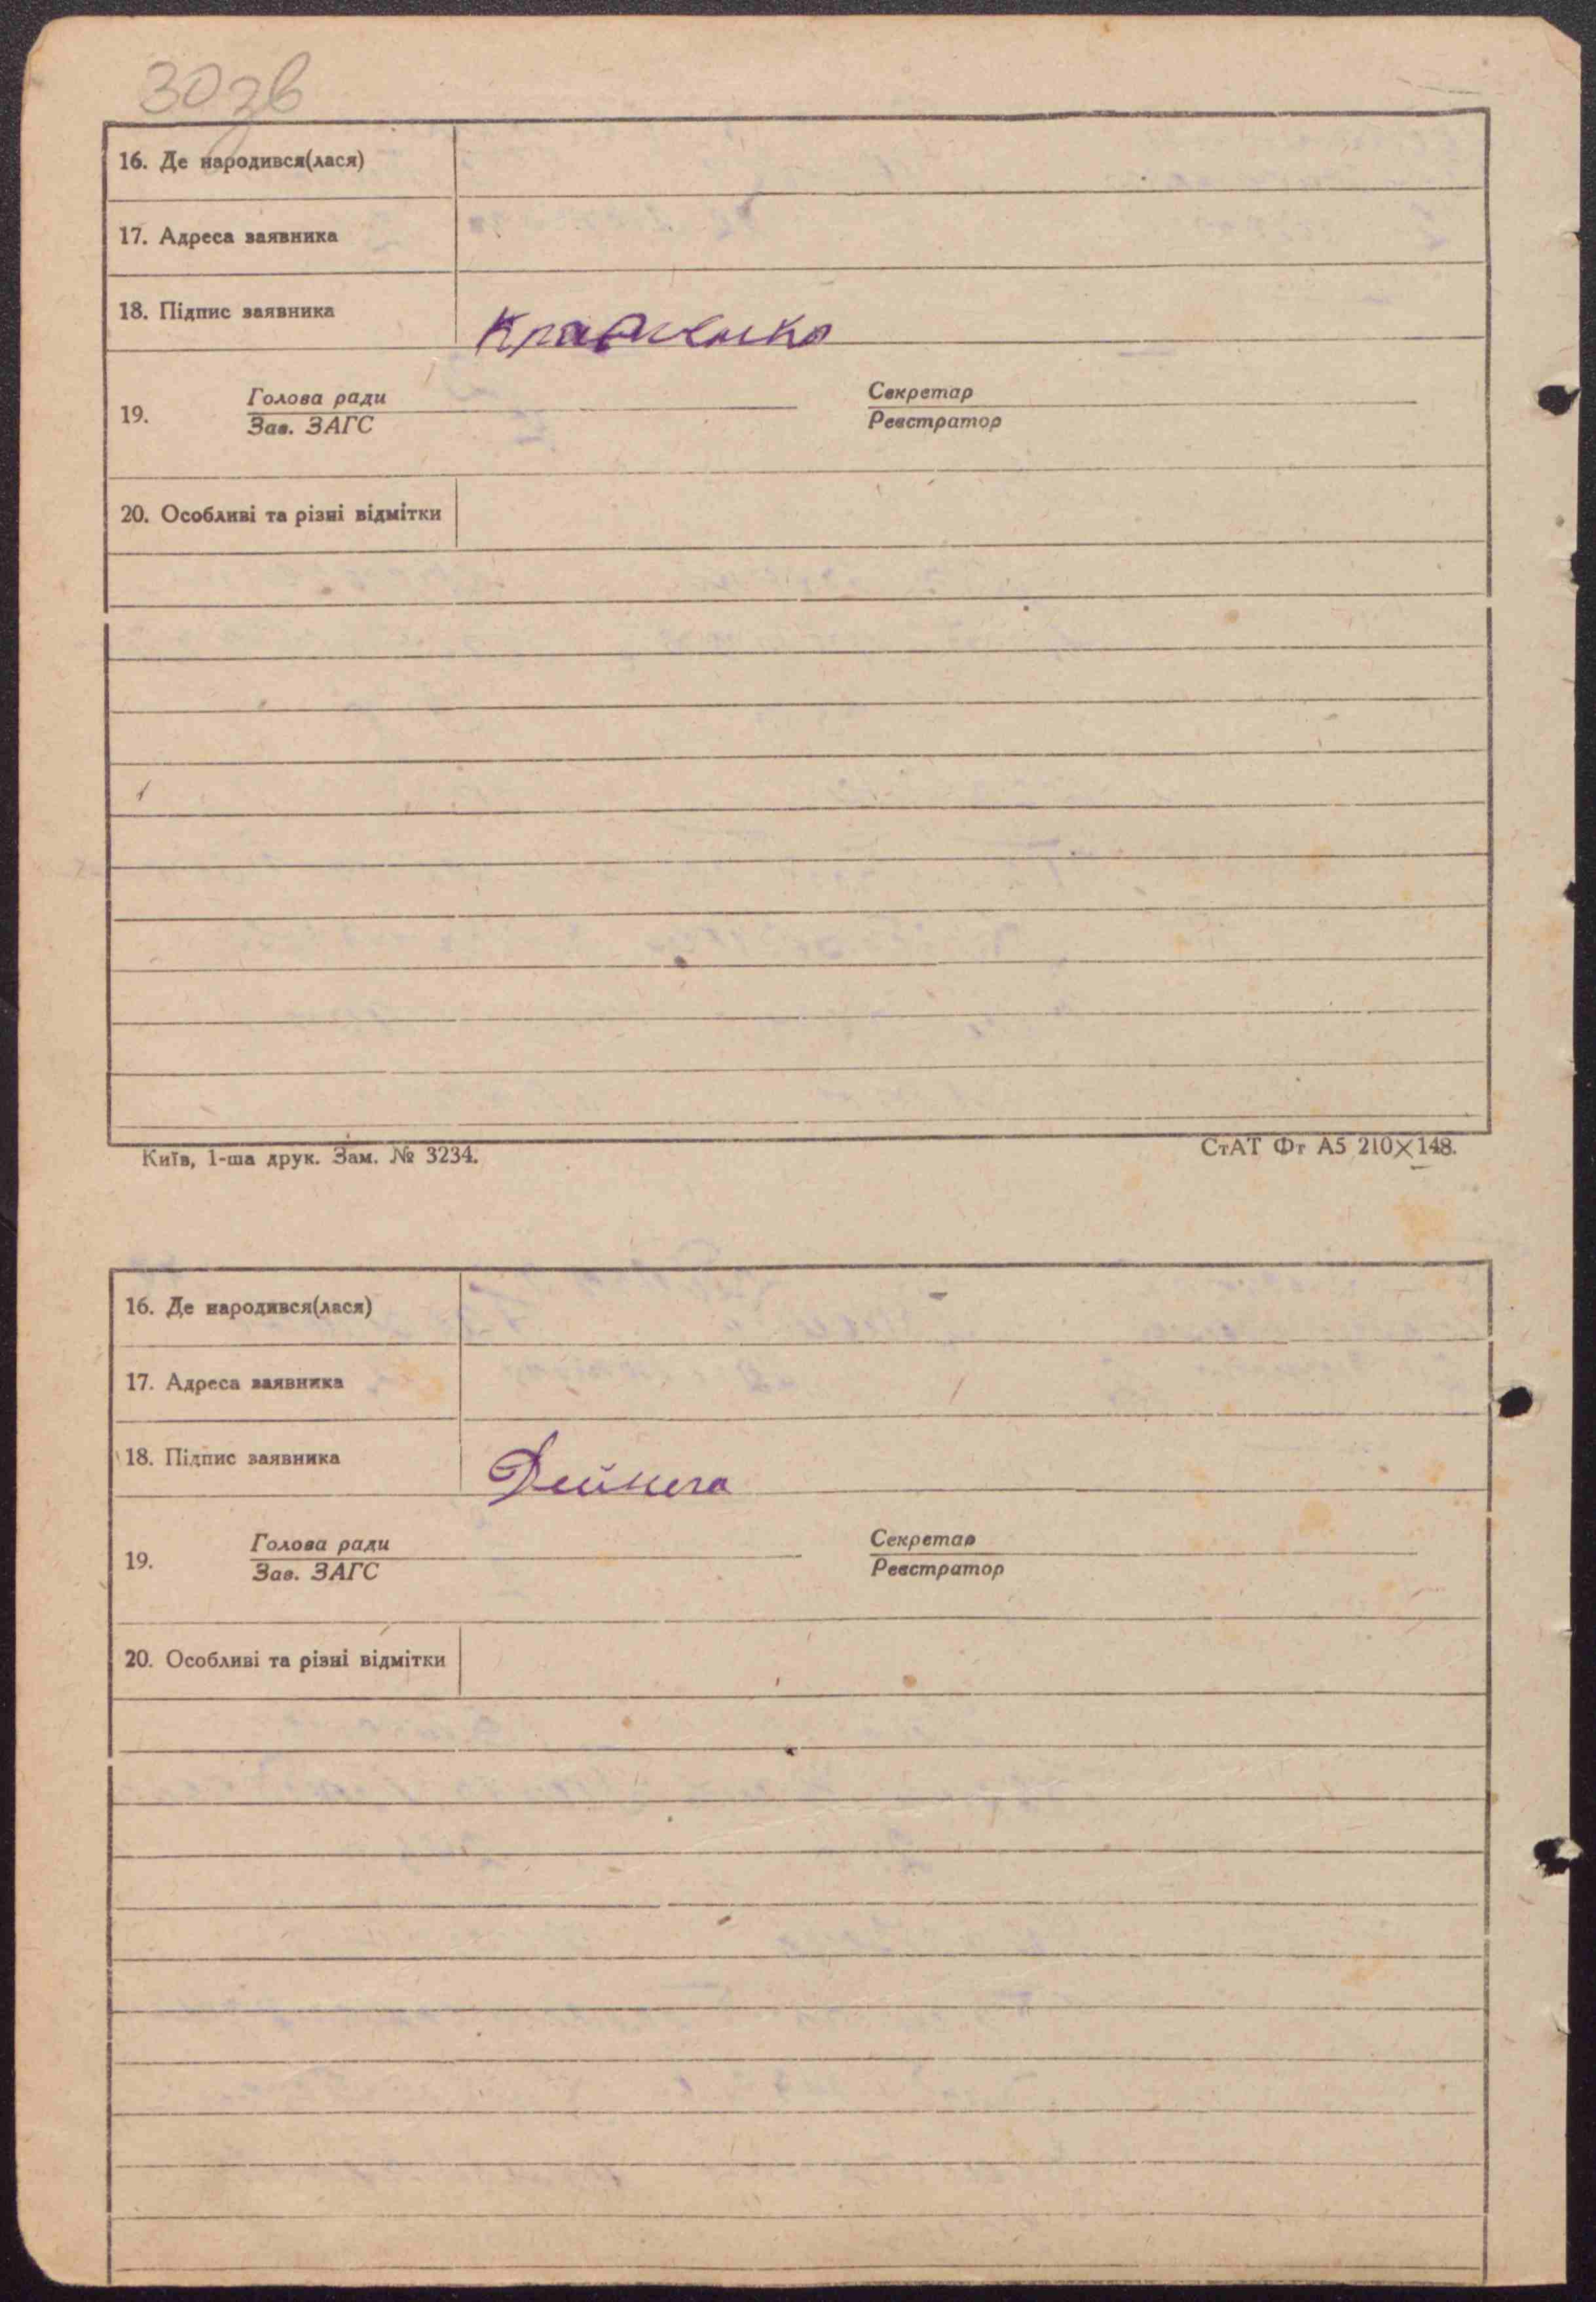 30зв
16. Де народився(лася)
17. Адреса заявника
18. Підпис заявника Кравченко
19. Голова ради Секретар
Зав. ЗАГС Реєстратор
20. Особливі та різні відмітки
Київ, 1-ша друк. Зам. № 3234. СтАТ Фт А5 210×148.
16. Де народився(лася)
17. Адреса заявника
18. Підпис заявника Дейнега
19. Голова ради Секретар
Зав. ЗАГС Реєстратор
20. Особливі та різні відмітки